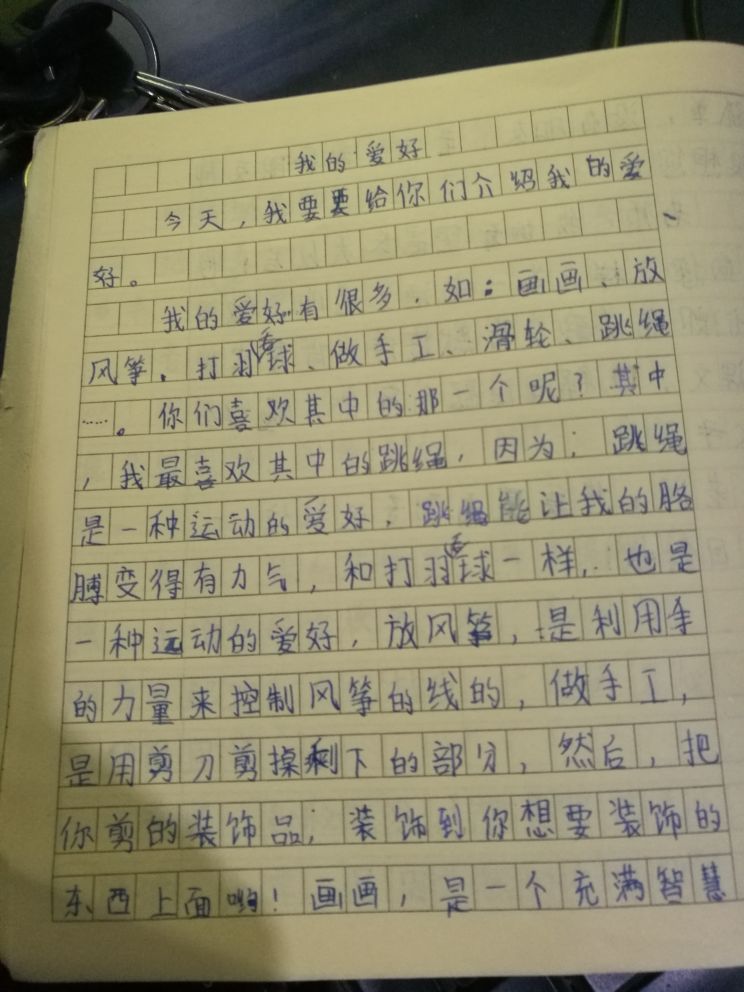 我的爱好
今天，我要要给你们介绍我的爱
好。
我的爱好有很多，如：画画、放
风筝，打羽毛球、做手工、滑轮、跳绳
……。你们喜欢其中的那一个呢？其中
，我最喜欢其中的跳绳，因为；跳绳
是一种运动的爱好，跳绳能让我的胳
膊变得有力气，和打羽毛球一样，也是
一种运动的爱好，放风筝，是利用手
的力量来控制风筝的线的，做手工，
是用剪刀剪掉剩下的部分，然后，把
你剪的装饰品；装饰到你想要装饰的
东西上面哟！画画，是一个充满智慧